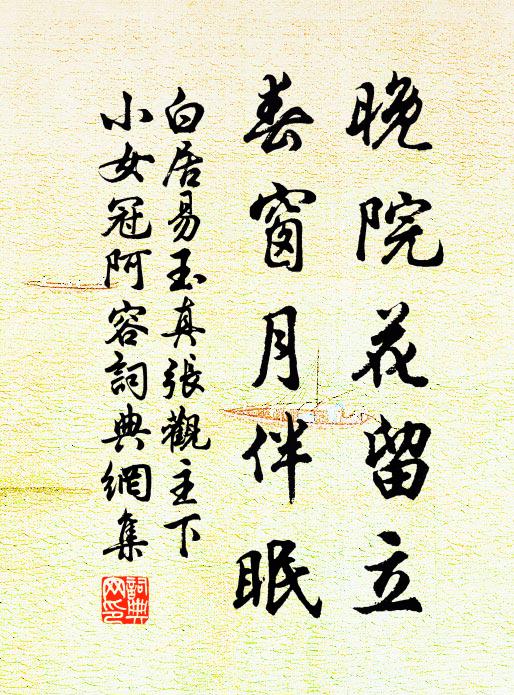 晚院花留立
春窗月伴眠
白居易玉真張觀主下
小女冠阿容詞典網集
詞典
网印